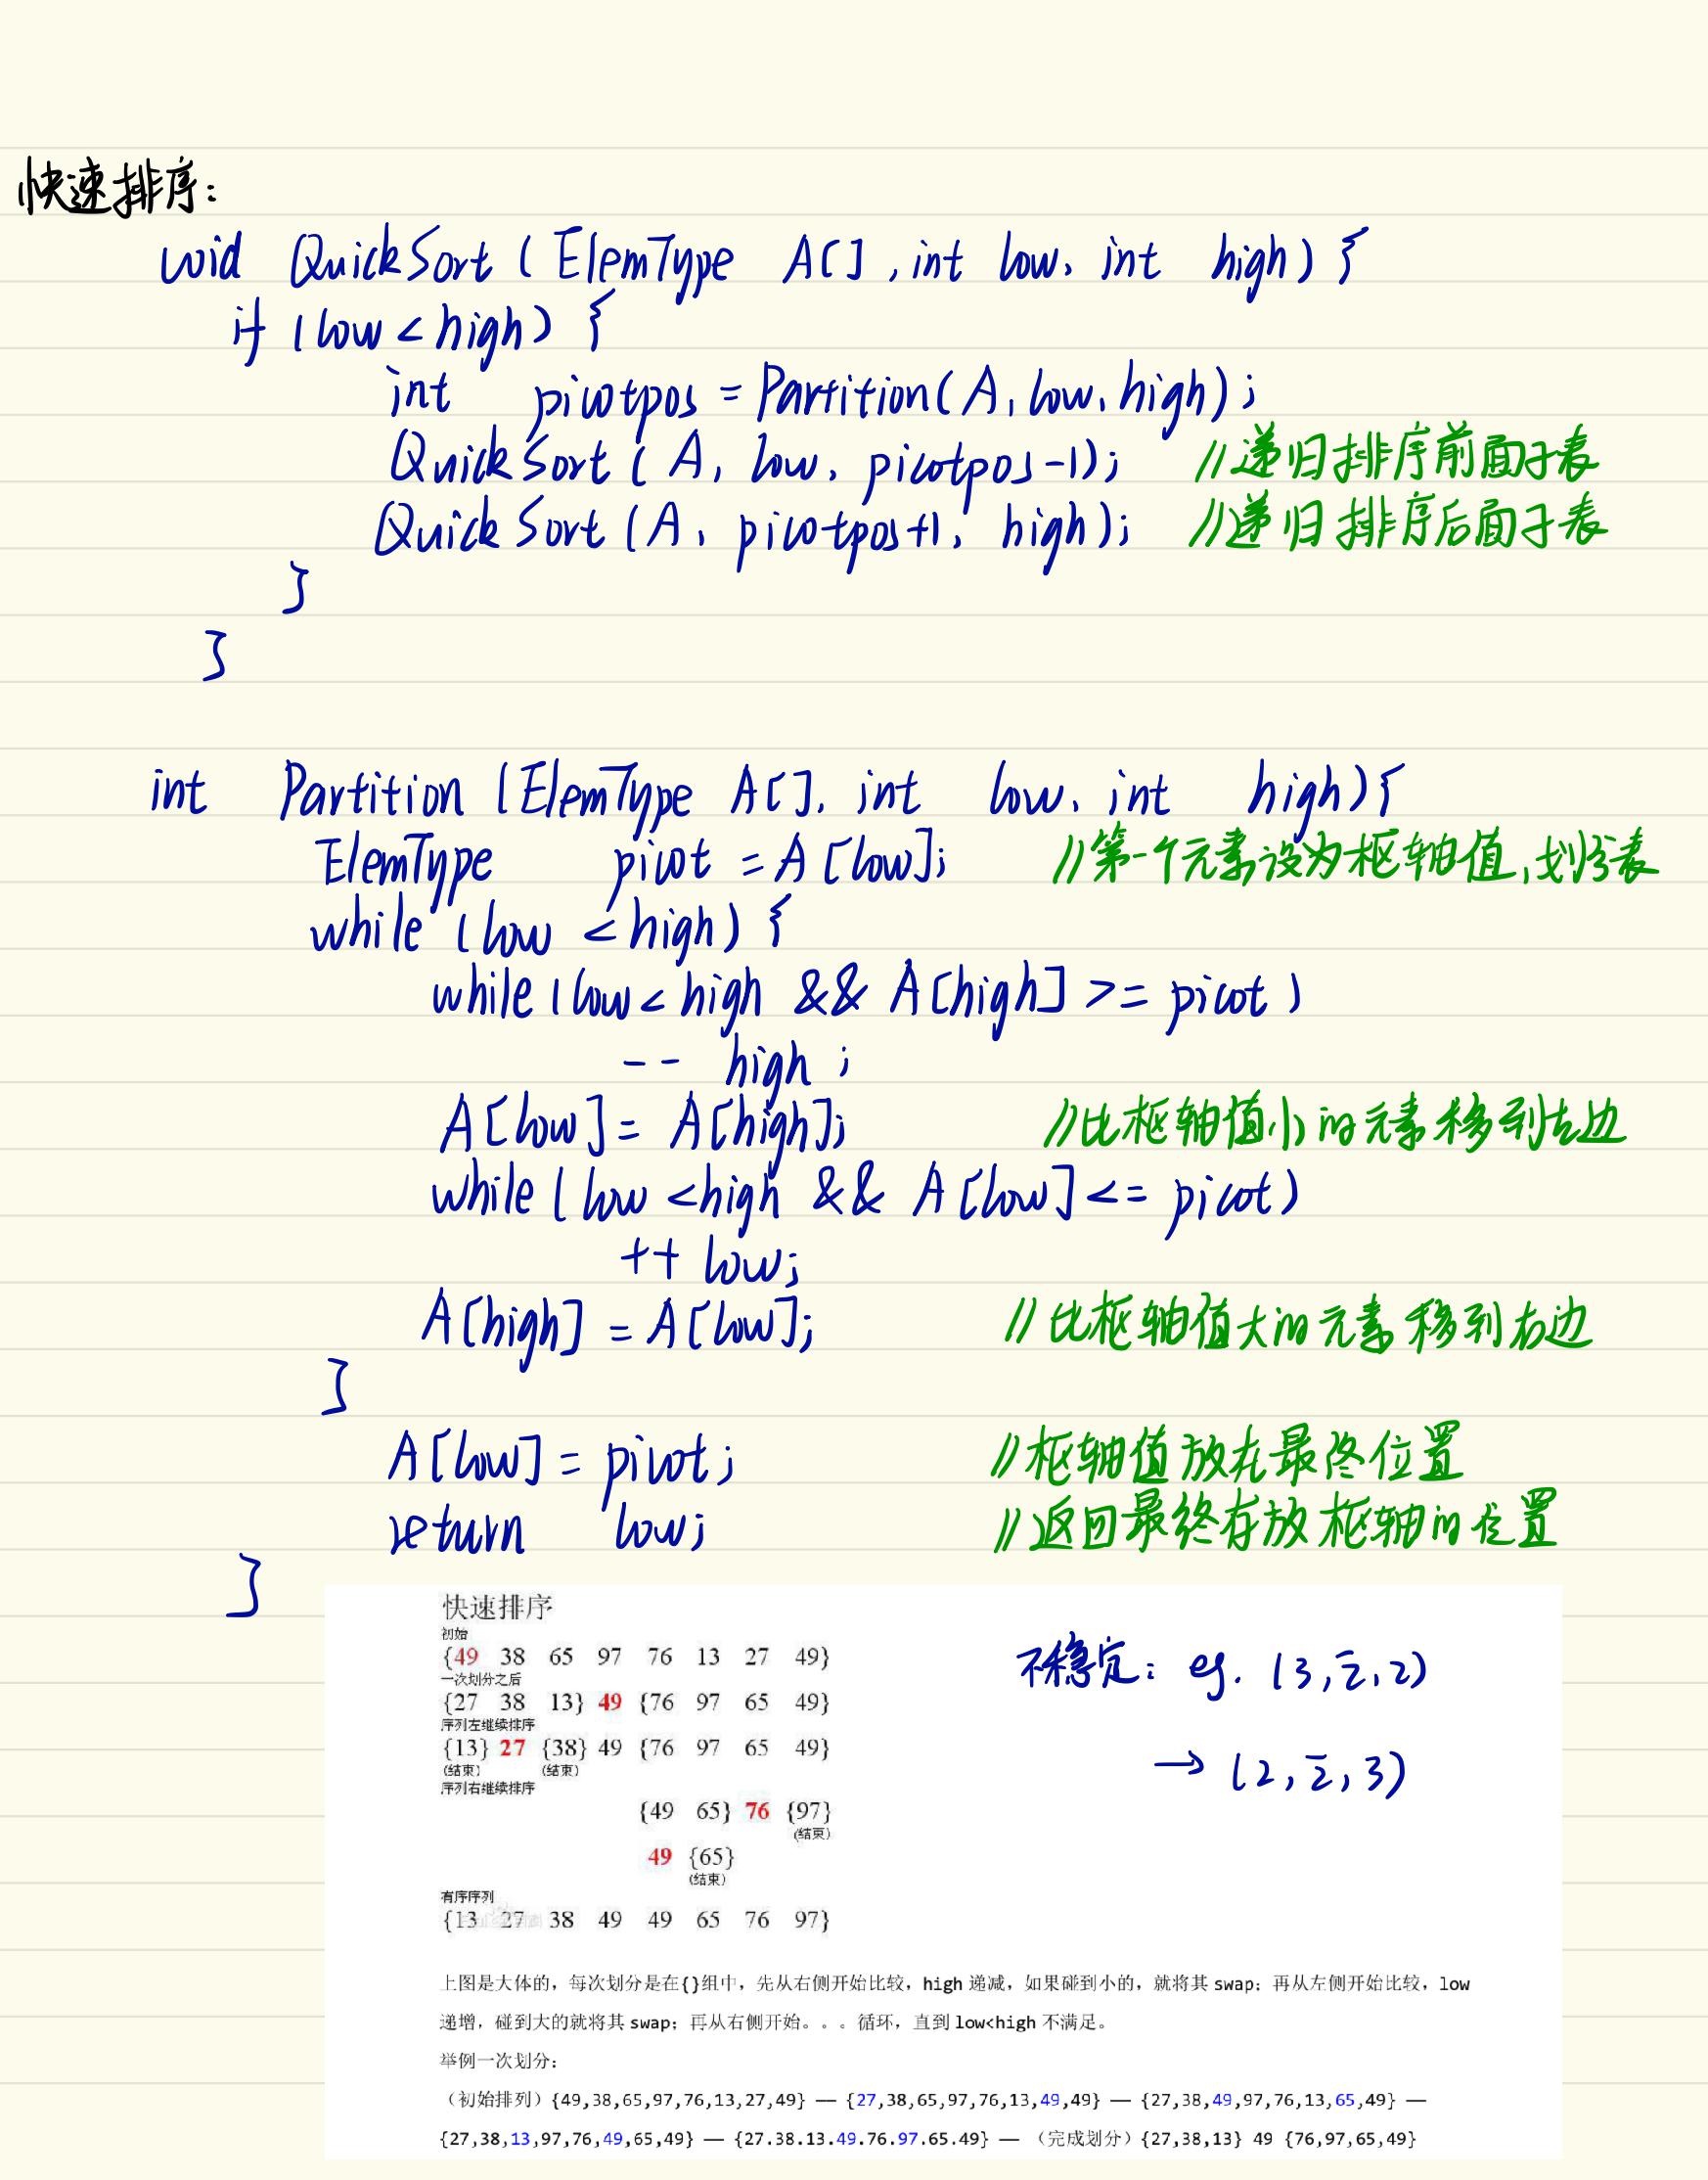 快速排序:
void QuickSort ( ElemType A[], int low, int high) {
if (low < high) {
int pivotpos = Partition(A, low, high);
QuickSort ( A, low, pivotpos-1); //递归排序前面子表
QuickSort (A, pivotpos+1, high); //递归排序后面子表
}
}
int Partition (ElemType A[], int low, int high){
ElemType pivot = A [low]; //第一个元素设为枢轴值,划分表
while (low < high) {
while (low < high && A[high] >= pivot )
-- high ;
A[low] = A[high]; //比枢轴值小的元素移到左边
while ( low < high && A[low] <= pivot)
++ low;
A[high] = A[low]; //比枢轴值大的元素移到右边
}
A[low] = pivot; //枢轴值放在最终位置
return low; //返回最终存放枢轴的位置
}
快速排序
初始
{49 38 65 97 76 13 27 49}
一次划分之后
{27 38 13} 49 {76 97 65 49}
序列左继续排序
{13} 27 {38} 49 {76 97 65 49}
(结束) (结束)
序列右继续排序
{49 65} 76 {97}
(结束)
49 {65}
(结束)
有序序列
{13 27 38 49 49 65 76 97}
不稳定: eg. (3, 2̄, 2)
→ (2, 2̄, 3)
上图是大体的，每次划分是在{}组中，先从右侧开始比较，high 递减，如果碰到小的，就将其 swap；再从左侧开始比较，low
递增，碰到大的就将其 swap；再从右侧开始。。。循环，直到 low<high 不满足。
举例一次划分：
（初始排列）{49,38,65,97,76,13,27,49} — {27,38,65,97,76,13,49,49} — {27,38,49,97,76,13,65,49} —
{27,38,13,97,76,49,65,49} — {27.38.13.49.76.97.65.49} — （完成划分）{27,38,13} 49 {76,97,65,49}